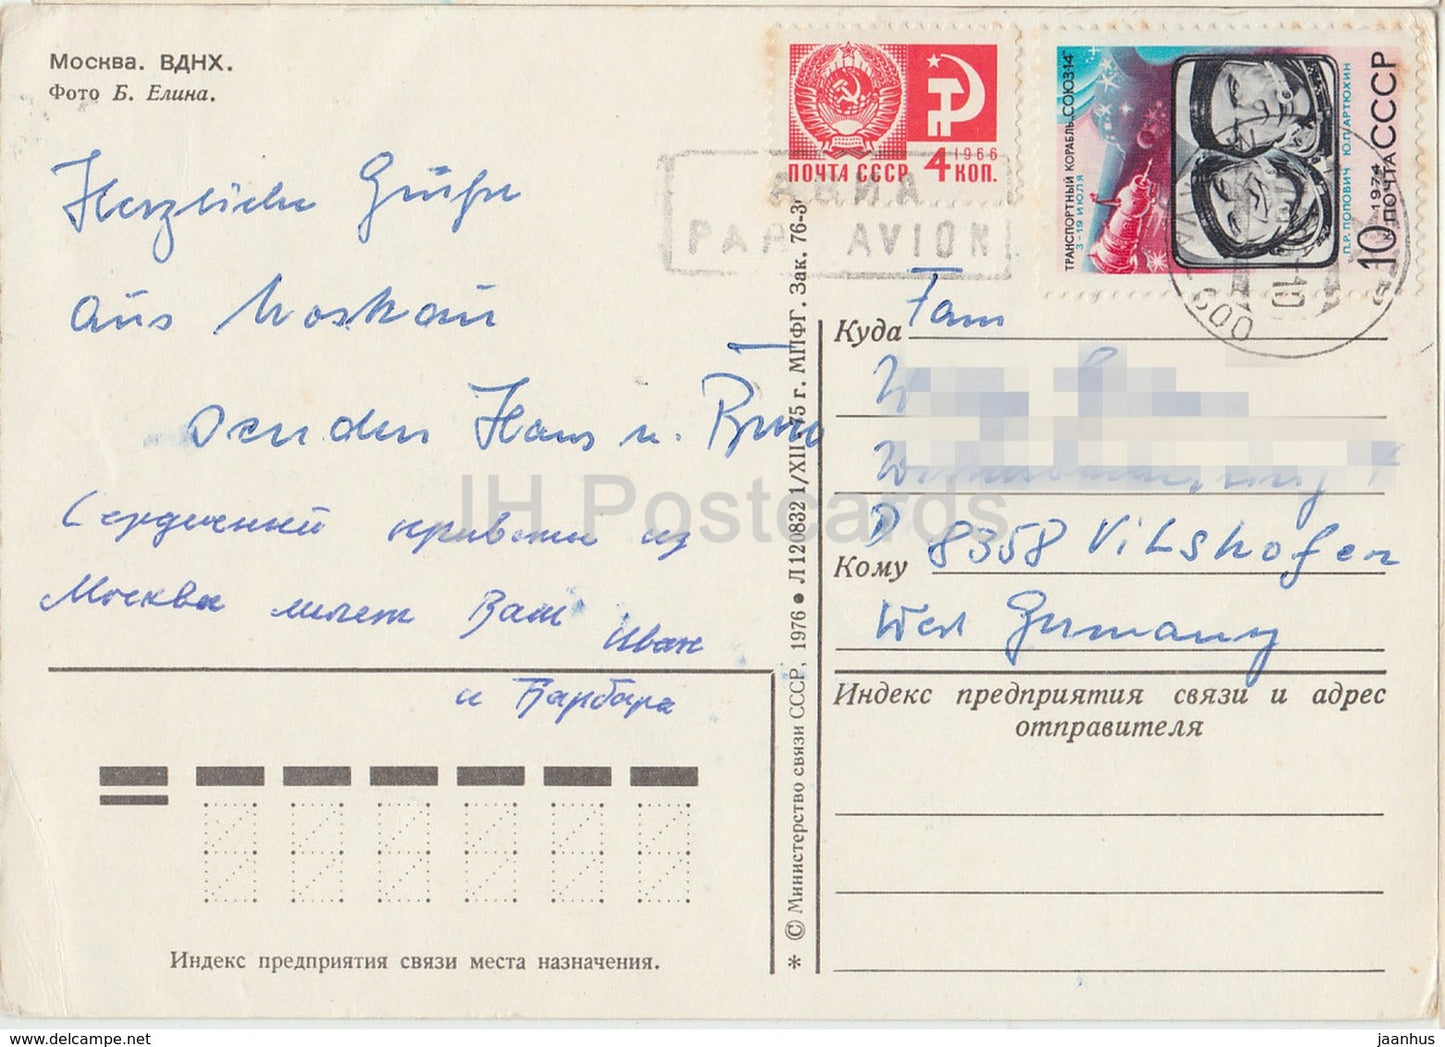 Москва. ВДНХ.
Фото Б. Елина.
Herzliche Grüße
aus Moskau
senden Hans u.
Сердечний привет из
Москвы шлет Вам Иван
и Барбара
Индекс предприятия связи места назначения.
* © Министерство связи СССР, 1976 ● Л 120832 1/XII.75 г. МПФГ. Зак. 76-3
1966
ПОЧТА СССР 4 КОП.
АВИА
PAR AVION
ТРАНСПОРТНЫЙ КОРАБЛЬ „СОЮЗ-14"
3-19 ИЮЛЯ
П.Р. ПОПОВИЧ Ю.П. АРТЮХИН
1974
10К ПОЧТА СССР
Куда Fam
D 8358 Vilshofen
Кому
West Germany
Индекс предприятия связи и адрес
отправителя
IH Postcards
jaanhus